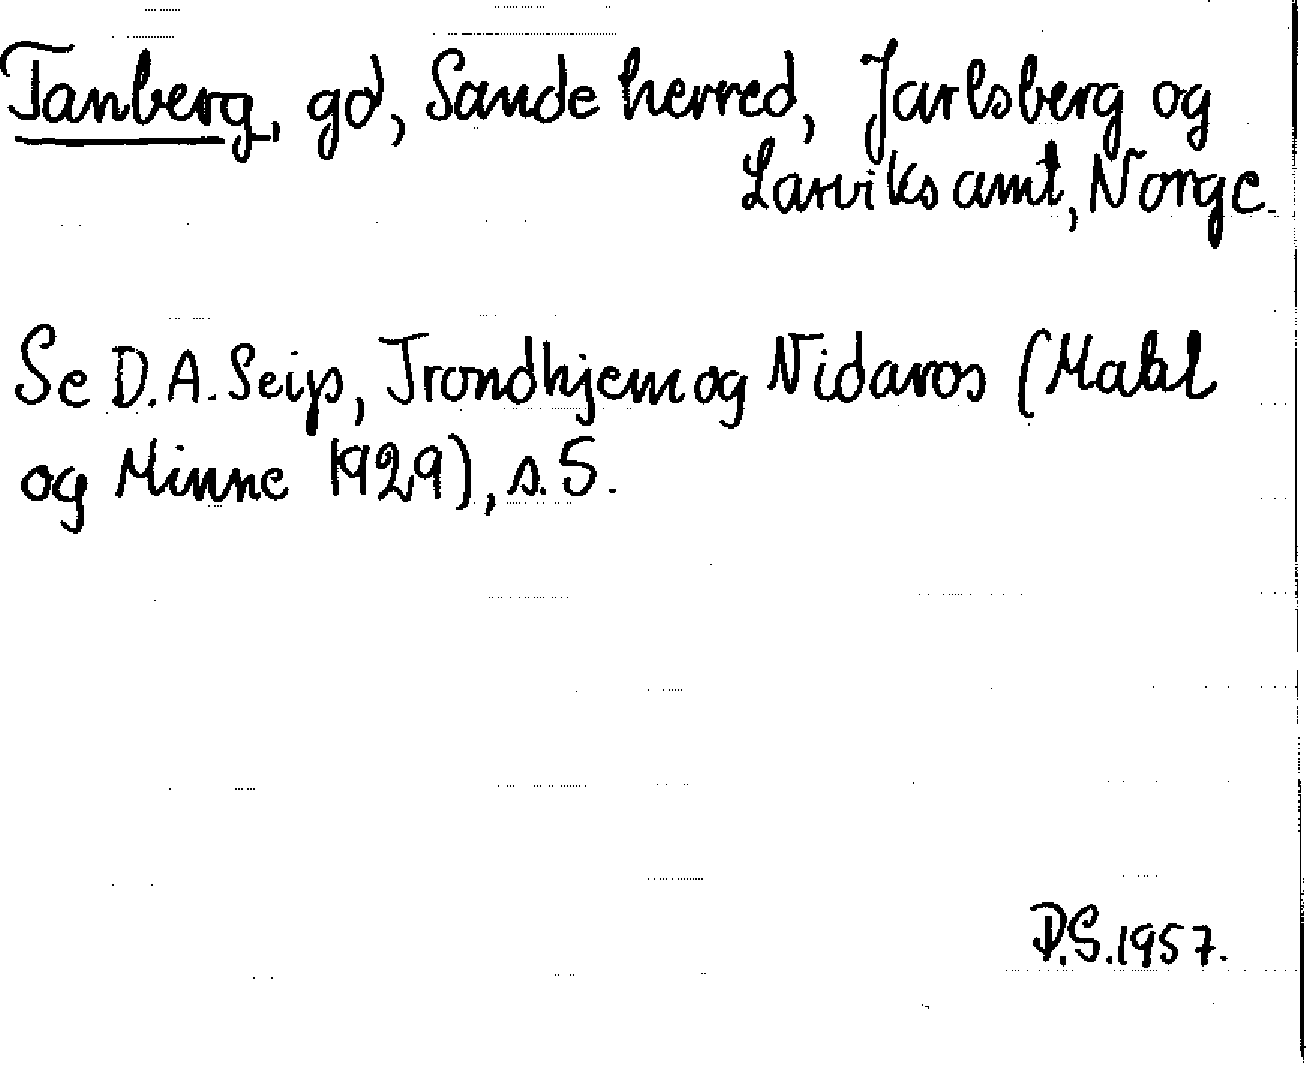 Tanberg, gd, Sande herred, Jarlsberg og
Larviks amt, Norge.
Se D.A. Seip, Trondhjem og Nidaros (Maal
og Minne 1929), s. 5.
D.S. 1957.